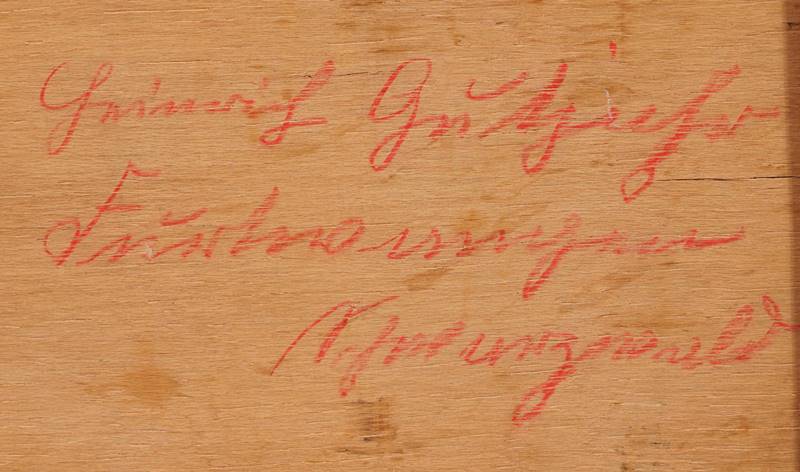 Heinrich Gutzieher
Furtwangen
Schwarzwald